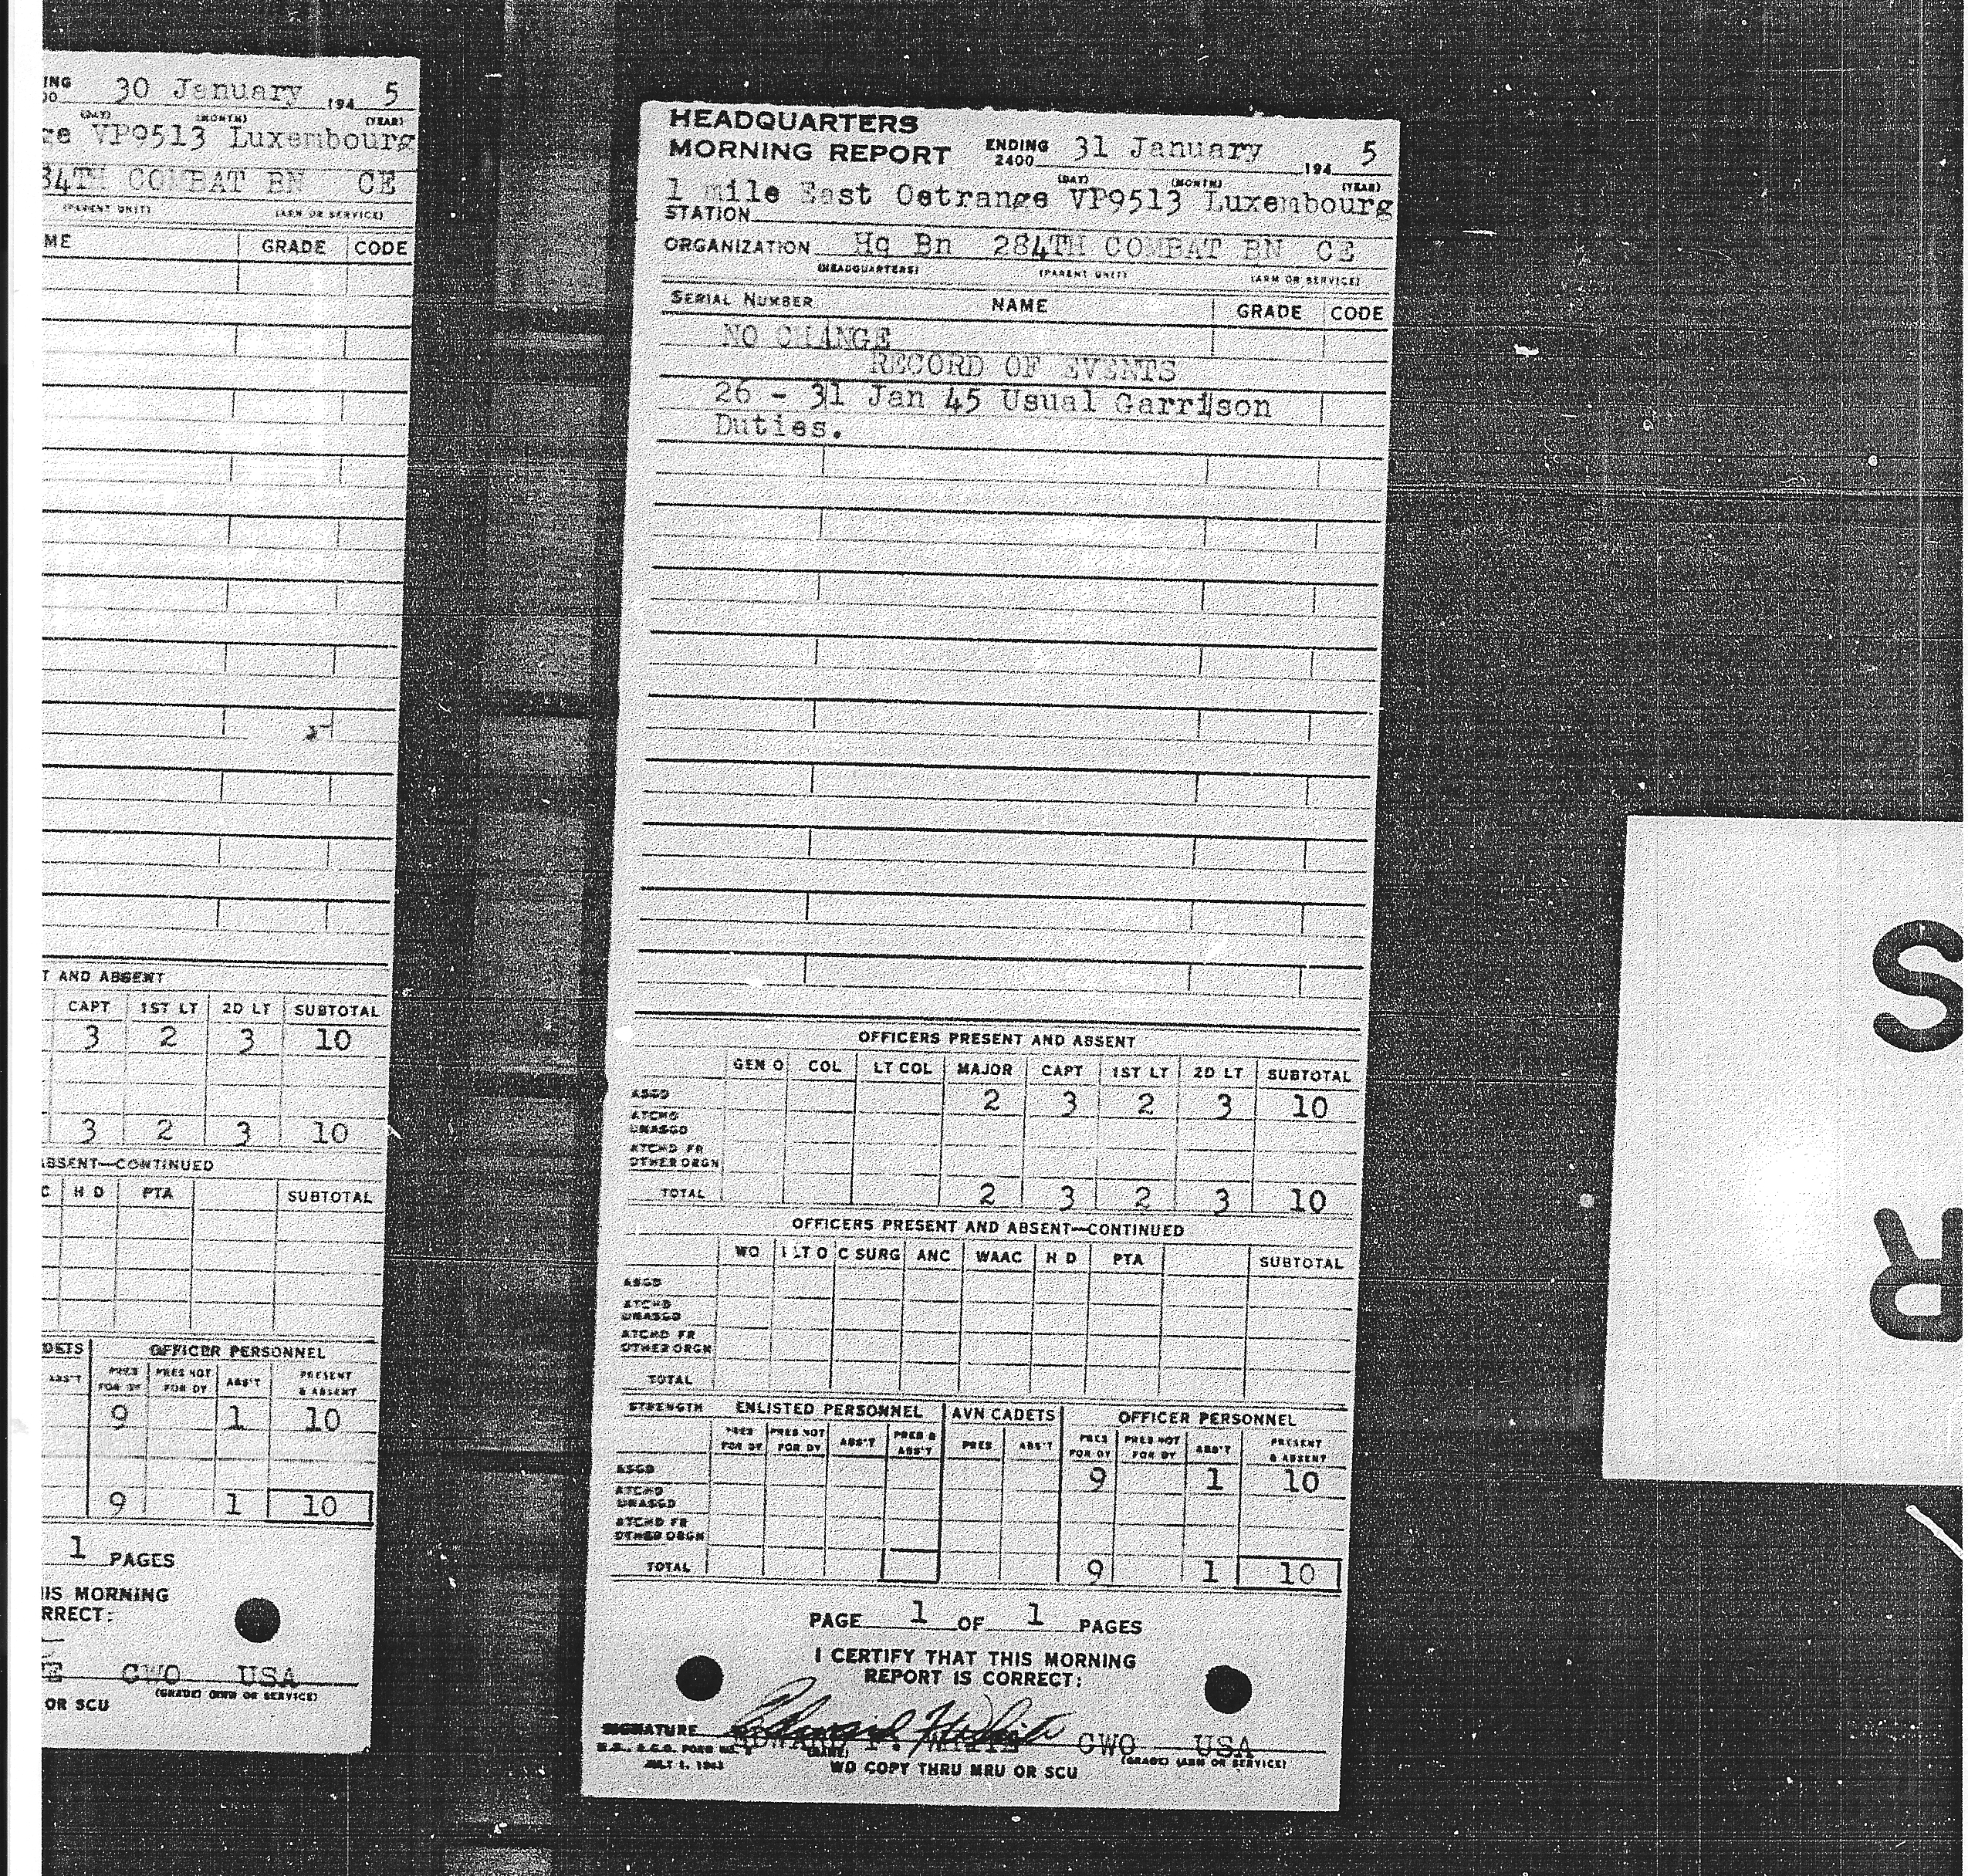 ING 30 January 194 5
00 (DAY) (MONTH) (YEAR)
ge VP9513 Luxembourg
84TH COMBAT BN CE
(PARENT UNIT) (ARM OR SERVICE)
ME GRADE CODE
T AND ABSENT
CAPT 1ST LT 2D LT SUBTOTAL
3 2 3 10
3 2 3 10
ABSENT—CONTINUED
C H D PTA SUBTOTAL
DETS OFFICER PERSONNEL
ABS'T PRES FOR DY PRES NOT FOR DY ABS'T PRESENT & ABSENT
9 1 10
9 1 10
1 PAGES
IS MORNING
RRECT:
E CWO USA
(GRADE) (ARM OR SERVICE)
OR SCU
HEADQUARTERS
MORNING REPORT ENDING 2400 31 January 194 5
(DAY) (MONTH) (YEAR)
1 mile East Oetrange VP9513 Luxembourg
STATION
ORGANIZATION Hq Bn 284TH COMBAT BN CE
(HEADQUARTERS) (PARENT UNIT) (ARM OR SERVICE)
SERIAL NUMBER NAME GRADE CODE
NO CHANGE
RECORD OF EVENTS
26 - 31 Jan 45 Usual Garrison
Duties.
OFFICERS PRESENT AND ABSENT
GEN O COL LT COL MAJOR CAPT 1ST LT 2D LT SUBTOTAL
ASGD 2 3 2 3 10
ATCHD
UNASGD
ATCHD FR
OTHER ORGN
TOTAL 2 3 2 3 10
OFFICERS PRESENT AND ABSENT—CONTINUED
WO FLT O C SURG ANC WAAC H D PTA SUBTOTAL
ASGD
ATCHD
UNASGD
ATCHD FR
OTHER ORGN
TOTAL
STRENGTH ENLISTED PERSONNEL AVN CADETS OFFICER PERSONNEL
PRES FOR DY PRES NOT FOR DY ABS'T PRES & ABS'T PRES ABS'T PRES FOR DY PRES NOT FOR DY ABS'T PRESENT & ABSENT
ASGD 9 1 10
ATCHD
UNASGD
ATCHD FR
OTHER ORGN
TOTAL 9 1 10
PAGE 1 OF 1 PAGES
I CERTIFY THAT THIS MORNING
REPORT IS CORRECT:
SIGNATURE EDWARD F. WHITE CWO USA
(NAME) (GRADE) (ARM OR SERVICE)
W.D., A.G.O. FORM NO.
JULY 1, 1943
WD COPY THRU MRU OR SCU
S
R